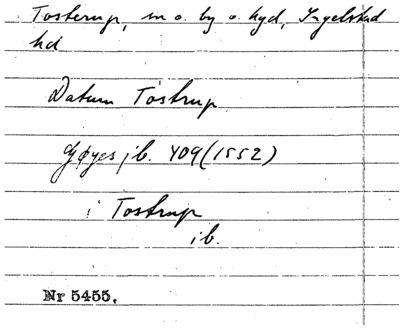 Tosterup, sn o. by o. hgd, Ingelstad
hd
Datum Tostrup
Gøyes jb. 409 (1552)
i Tostrup
ib.
Nr 5455.